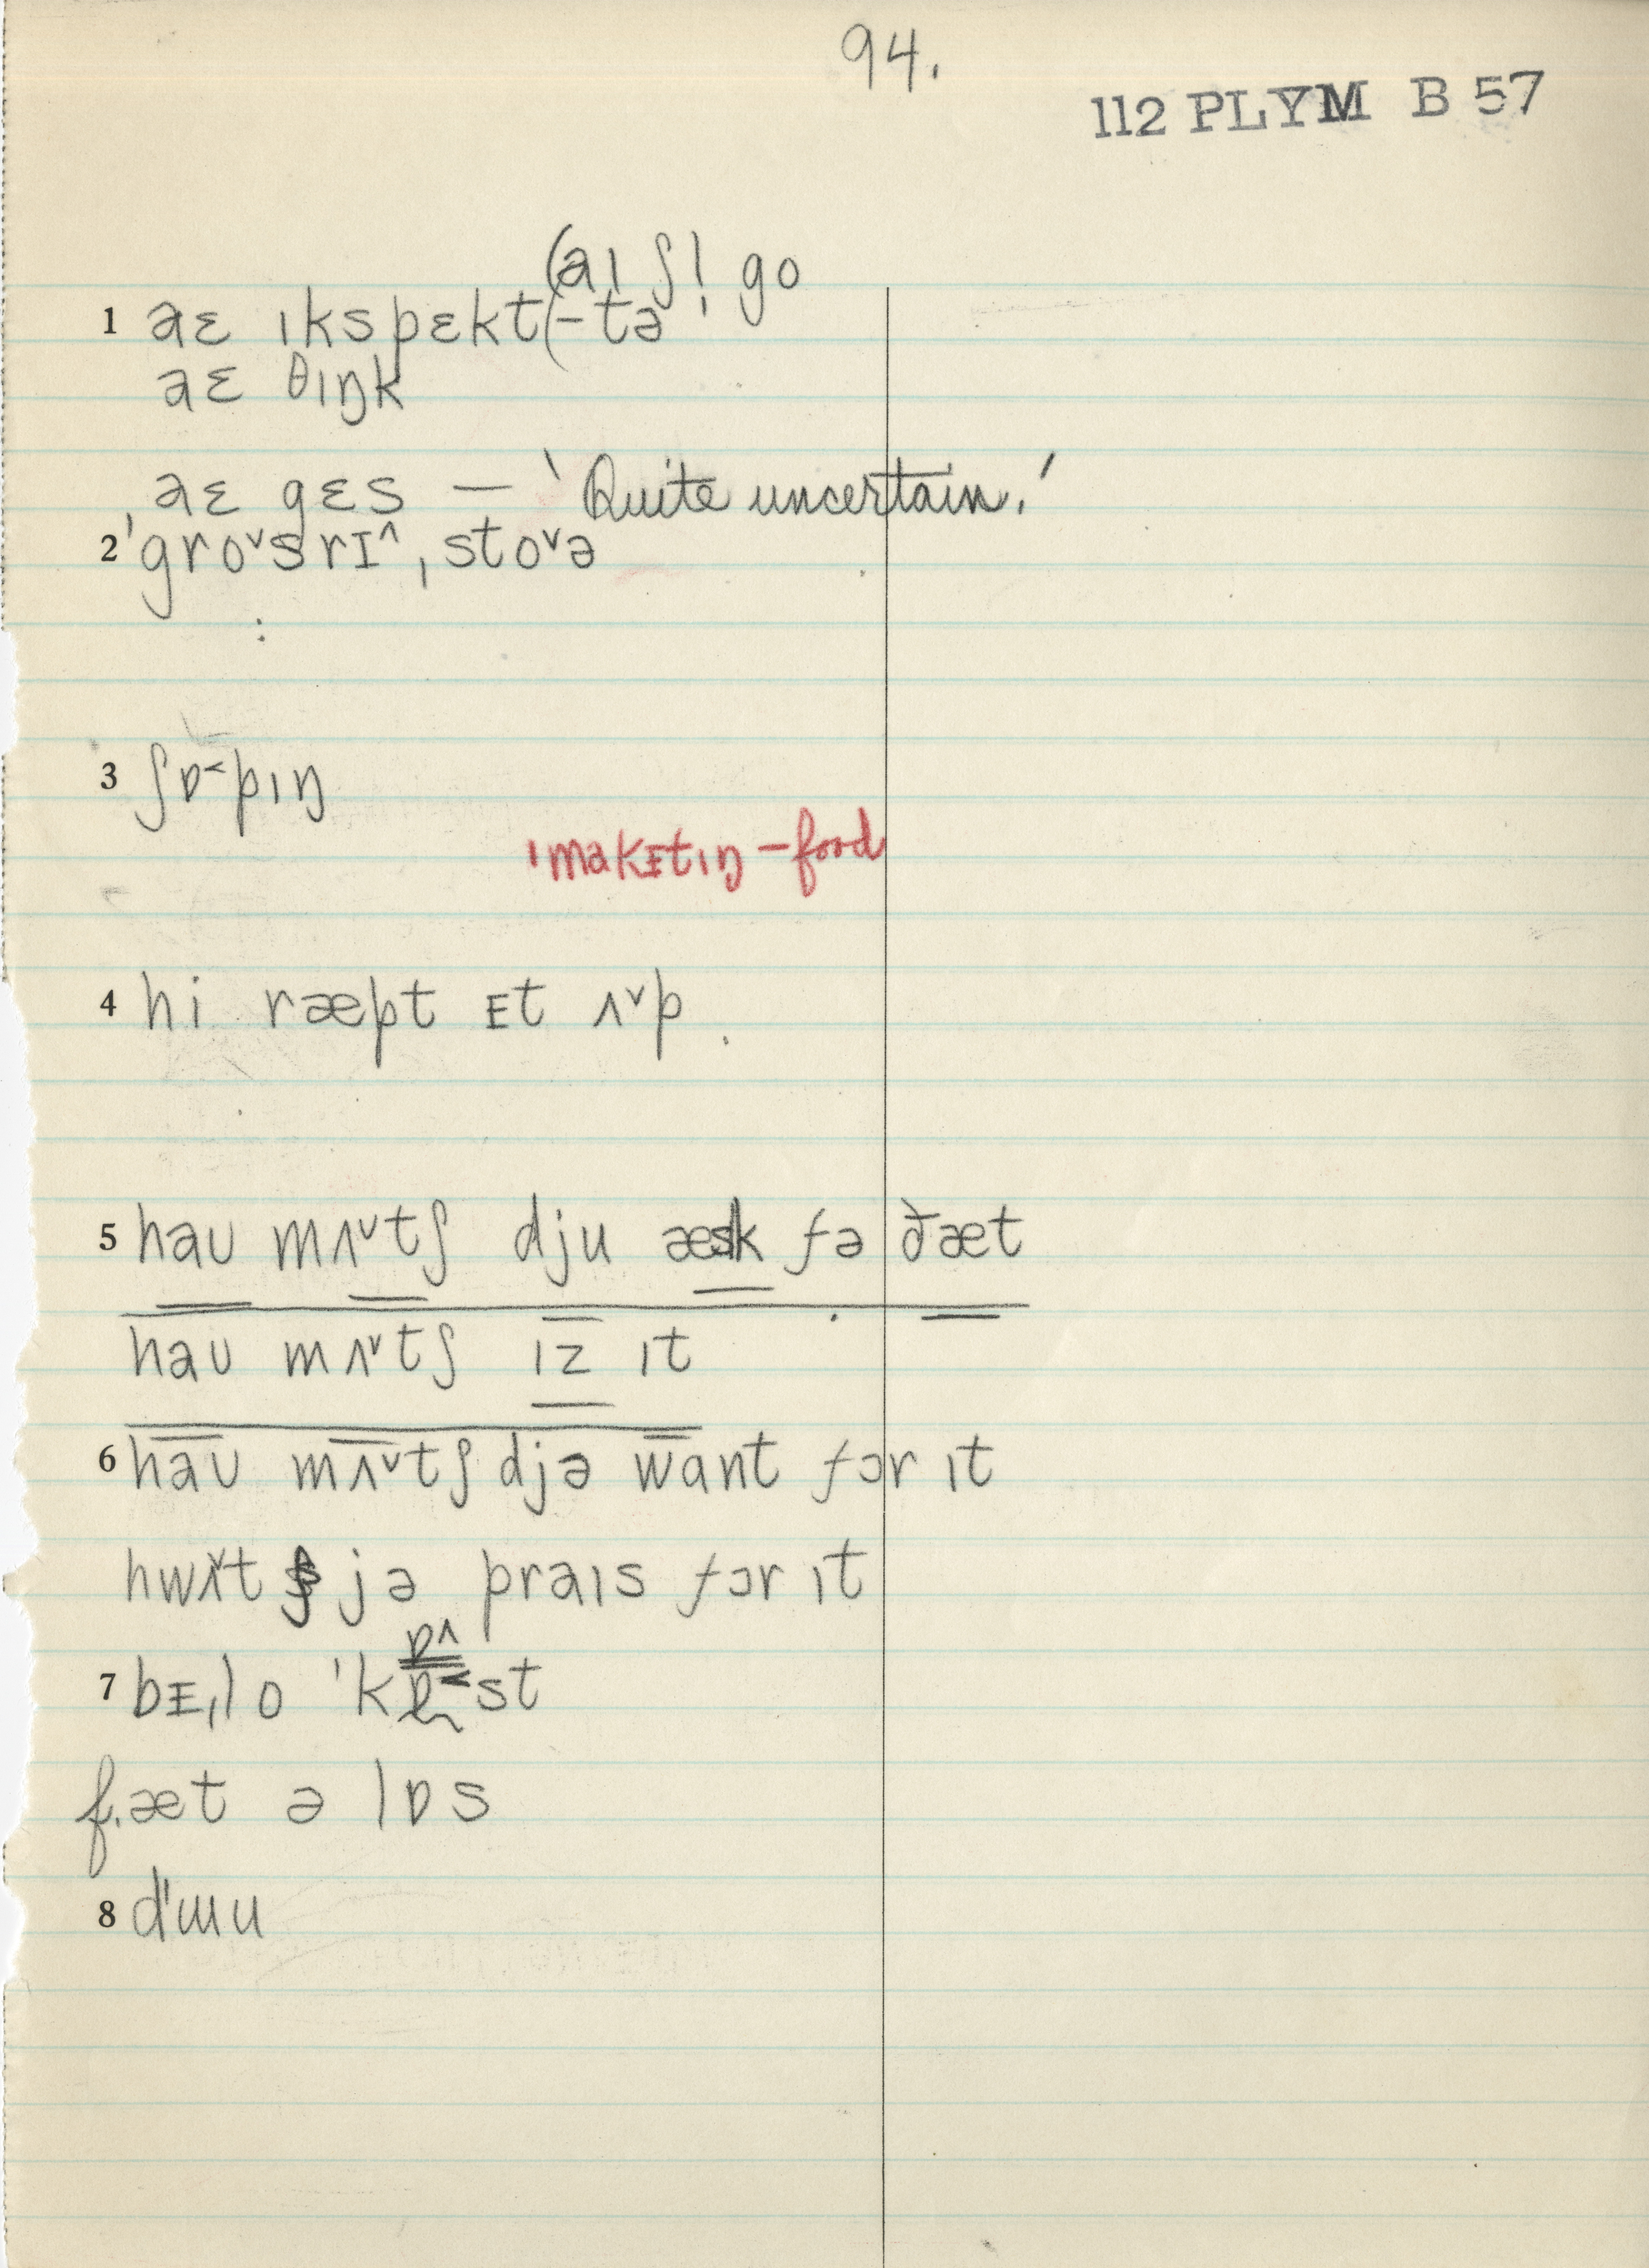 94.
112 PLYM B 57
(aɪ ʃl̩ go
1 aɛ ɪkspɛkt(-tə
aɛ θɪŋk
aɛ gɛs — 'Quite uncertain.'
2 ˈgroˇsrɪ^ˌstoˇə
:
3 ʃɒ˂pɪŋ
ˈmakᵻtɪŋ – food
4 hi ræpt ᵻt ʌˇp.
5 haʊ mʌˇtʃ dju æsk fə ðæt
haʊ mʌˇtʃ ɪz ɪt
6 haʊ mʌˇtʃ djə want fɔr ɪt
hwʌˇt s jə praɪs fɔr ɪt
ɒ^
7 bᵻˌlo ˈkɒ˂st
f. æt ə lɒs
8 dˈɯu